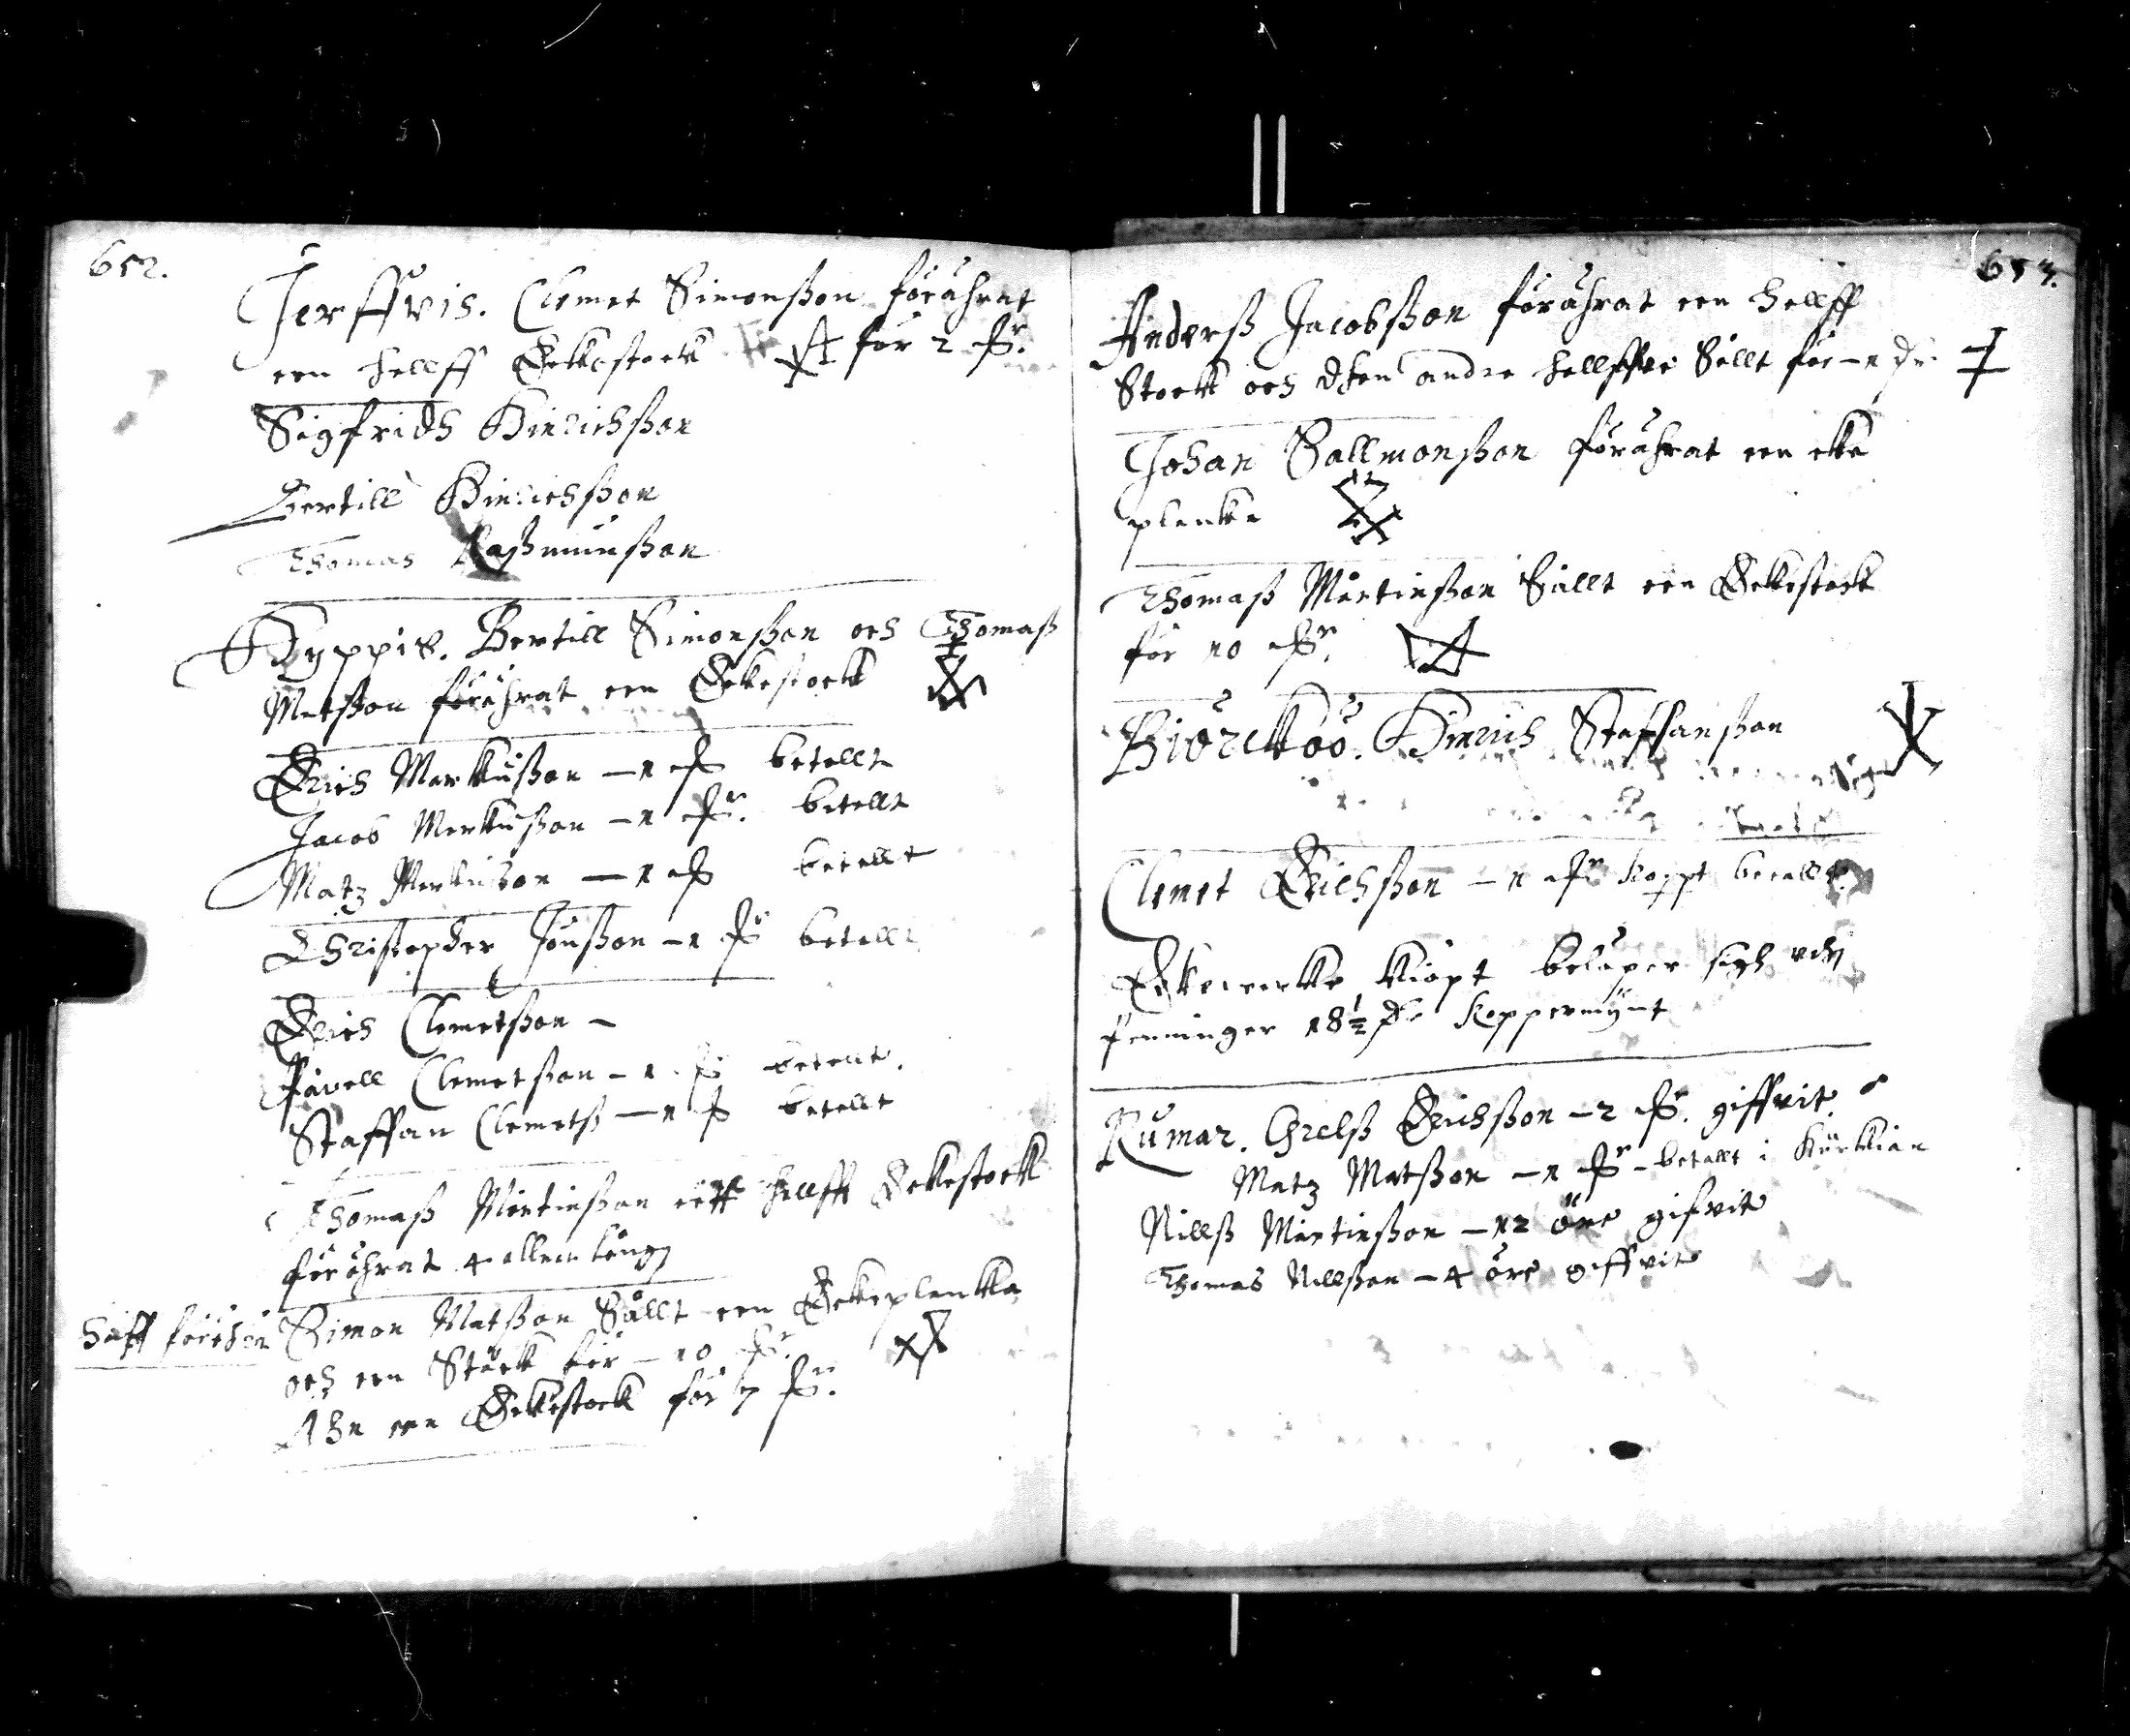 652.
Jerffvis. Clemet Simonßon förährat
een hellff Eekestock för 2 dr.
Sigfridh Hinrichßon
Bertill Hinrichßon
Thomas Raßmunßon
Kyppis. Bertill Simonßon och Thomaß
Matßon förährat een Eekestock
Erich Markußon – 1 dr betallt
Jacob Markußon – 1 dr. betallt
Matz Markußon – 1 dr betallt
Christopher Jönßon – 1 dr betallt
Erich Clemetßon –
Påvell Clemetßon – 1 dr betallt.
Staffan Clemetß – 1 dr betallt
Thomaß Mårtinßon ett hellfft Eekestock
förährat 4 allnar lång
Simon Matßon Sållt een Eekeplenka
och een Stock för – 10 dr.
een Eekestock för 7 dr.
653.
Anderß Jacobßon förährat een hellff
Stock och den andre hellffte Sållt för – 1 dr
Johan Sallmonßon förährat een eke
plenka
Thomaß Mårtinßon Sållt een Eekestock
för 10 dr.
Biörcköö. Hinrich Staffanßon
Clemet Erichßon – 1 dr kopp betallt
Eekewerke kiöpt belåper sigh udj
penninger 18½ dr Koppermynt
Rumar. Grelß Erichßon – 2 dr. giffvit
Matz Matßon – 1 dr – betallt i Kyrkian
Nillß Mårtinßon – 12 öre gifvit
Thomas Nillßon – 4 öre giffvit